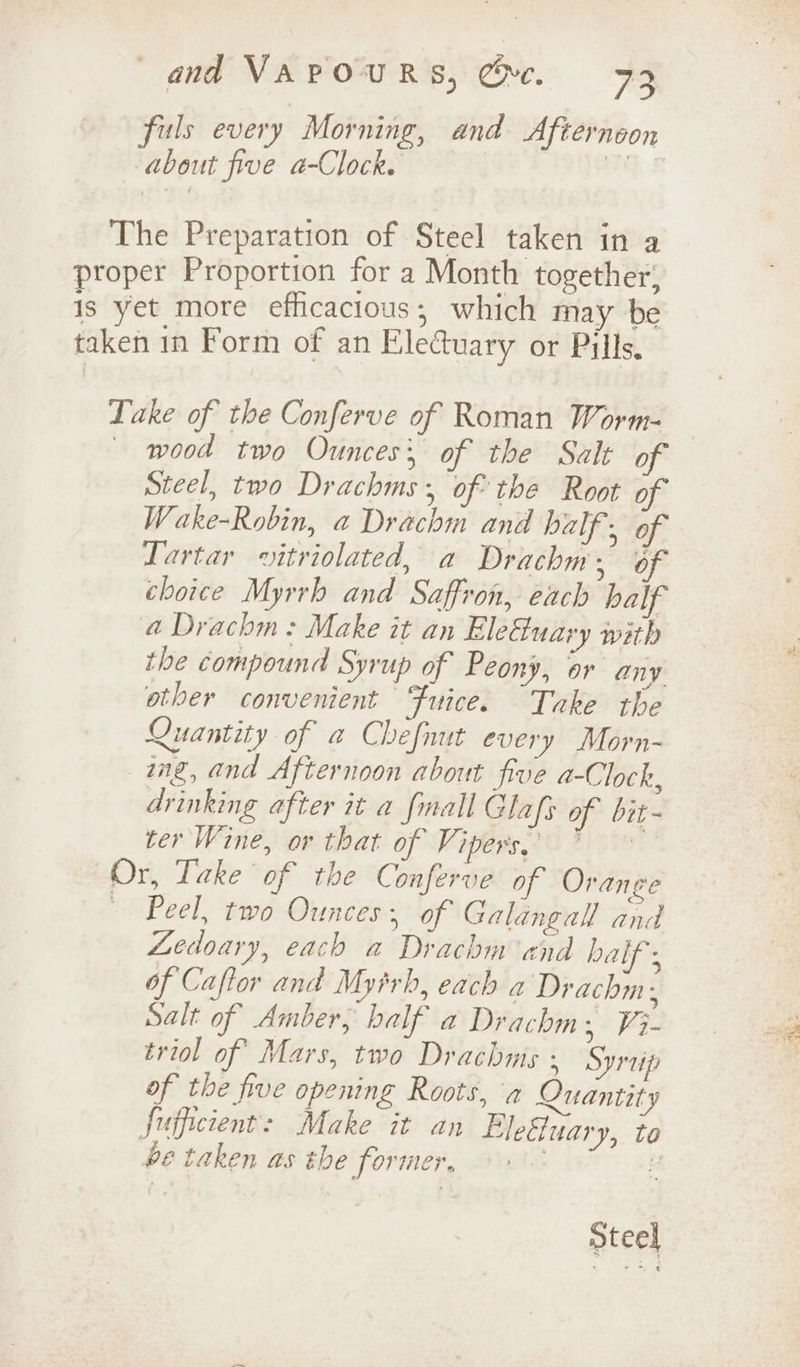 and VAPOURS, &c. 73
fuls every Morning, and Afternoon
about five a-Clock.
The Preparation of Steel taken in a
proper Proportion for a Month together,
is yet more efficacious; which may be
taken in Form of an Electuary or Pills.
Take of the Conſerve of Roman Worm-
wood two Ounces; of the Salt of
Steel, two Drachms; of the Root of
Wake-Robin, a Drachm and half; of
Tartar vitriolated, a Drachm; of
choice Myrrh and Saffron, each half
a Drachm: Make it an Electuary with
the compound Syrup of Peony, or any
other convenient Juice. Take the
Quantity of a Cheſnut every Morn-
ing, and Afternoon about five a-Clock,
drinking after it a ſmall Glaſs of bit-
ter Wine, or that of Vipers.
Or, Take of the Conſerve of Orange
Peel, two Ounces; of Galangall and
Zedoary, each a Drachm and half;
of Caſtor and Myrrh, each a Drachm;
Salt of Amber, half a Drachm; Vi-
triol of Mars, two Drachms; Syrup
of the five opening Roots, a Quantity
ſufficient: Make it an Electuary, to
be taken as the former.
Steel